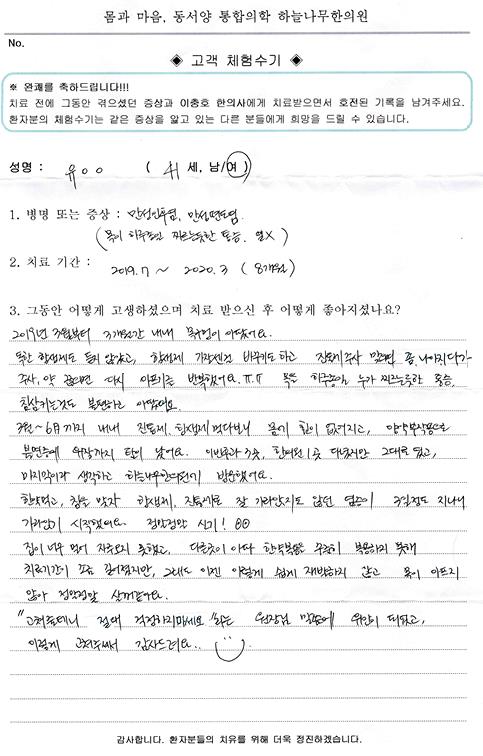 몸과 마음, 동서양 통합의학 하늘나무한의원
No.
◈ 고객 체험수기 ◈
※ 완쾌를 축하드립니다!!!
치료 전에 그동안 겪으셨던 증상과 이충호 한의사에게 치료받으면서 호전된 기록을 남겨주세요.
환자분의 체험수기는 같은 증상을 앓고 있는 다른 분들에게 희망을 드릴 수 있습니다.
성명 : 유○○ ( 41 세, 남/여 )
1. 병명 또는 증상 : 만성인후염, 만성편도염
(목이 하루종일 찌르는듯한 통증, 열X)
2. 치료 기간 : 2019.7 ~ 2020.3 (8개월)
3. 그동안 어떻게 고생하셨으며 치료 받으신 후 어떻게 좋아지셨나요?
2019년 3월부터 3개월간 내내 목구멍이 아팠어요.
독한 항생제도 듣지 않았고, 항생제 가장센걸로 바꾸기도 하고 진통제주사 맞으면 좀 나아지다가
주사, 약 끊으면 다시 아프기를 반복했어요.ㅠ.ㅠ 목을 하루종일 누가 찌르는듯한 통증,
침삼키는것도 불편하고 아팠어요.
3월~6월까지 내내 진통제, 항생제 먹다보니 몸이 힘이 없어지고, 양약부작용으로
불면증에 위장까지 탈이 났어요. 이비인후과 3곳, 한의원 1곳 다녔지만 그대로였고,
마지막이라 생각하고 하늘나무한의원에 방문했어요.
한약먹고, 침을 맞자 항생제, 진통제로도 잘 가라앉지도 않던 염증이 3일정도 지나니
가라앉기 시작했어요. 정말정말 신기!
집이 너무 멀어 자주오지 못했고, 다른곳이 아파 한약복용을 꾸준히 복용하지 못해
치료기간이 조금 길어졌지만, 그래도 이젠 이렇게 쉽게 재발하지 않고 목이 아프지
않아 정말정말 살거같아요.
"고쳐줄테니 절대 걱정하지마세요" 라는 원장님 말씀에 위안이 되었고,
이렇게 고쳐주셔서 감사드려요..
감사합니다. 환자분들의 치유를 위해 더욱 정진하겠습니다.